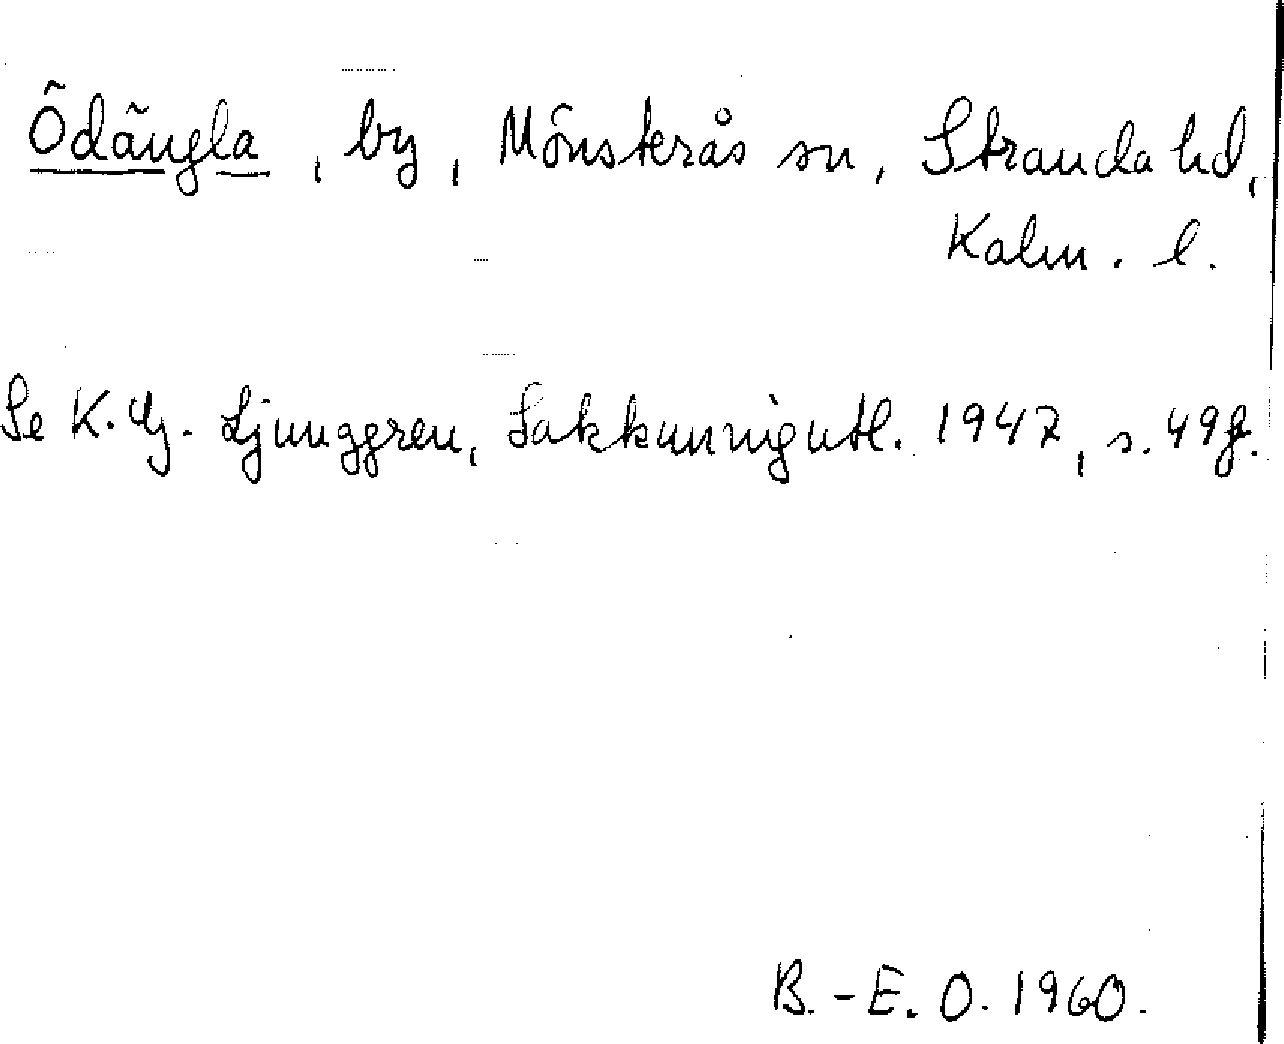 Ödängla, by, Mönsterås sn, Stranda hd,
Kalm. l.
Se K. G. Ljunggren, Sakkunnigutl. 1947, s. 49f.
B.-E. O. 1960.